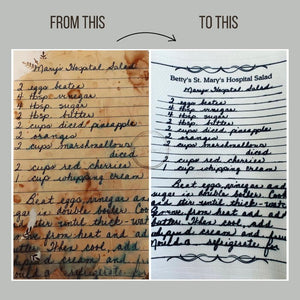 FROM THIS
TO THIS
Mary's Hospital Salad
2 eggs beaten
4 tbsp. vinegar
4 tbsp. sugar
2 tbsp. butter
2 cups diced pineapple
2 oranges
2 cups marshmallows
diced
2 cups red cherries
1 cup whipping cream
Beat eggs, vinegar and
sugar in double boiler. Coo
and stir until thick-wate
Remove from heat and add
butter. Then cool, add
whipped cream and
Mould & refrigerate
Betty's St. Mary's Hospital Salad
Mary's Hospital Salad
2 eggs beaten
4 tbsp. vinegar
4 tbsp. sugar
2 tbsp. butter
2 cups diced pineapple
2 oranges
2 cups marshmallows
diced
2 cups red cherries
1 cup whipping cream
Beat eggs, vinegar and
sugar in double boiler. Coo
and stir until thick-wate
Remove from heat and add
butter. Then cool, add
whipped cream and
Mould & refrigerate